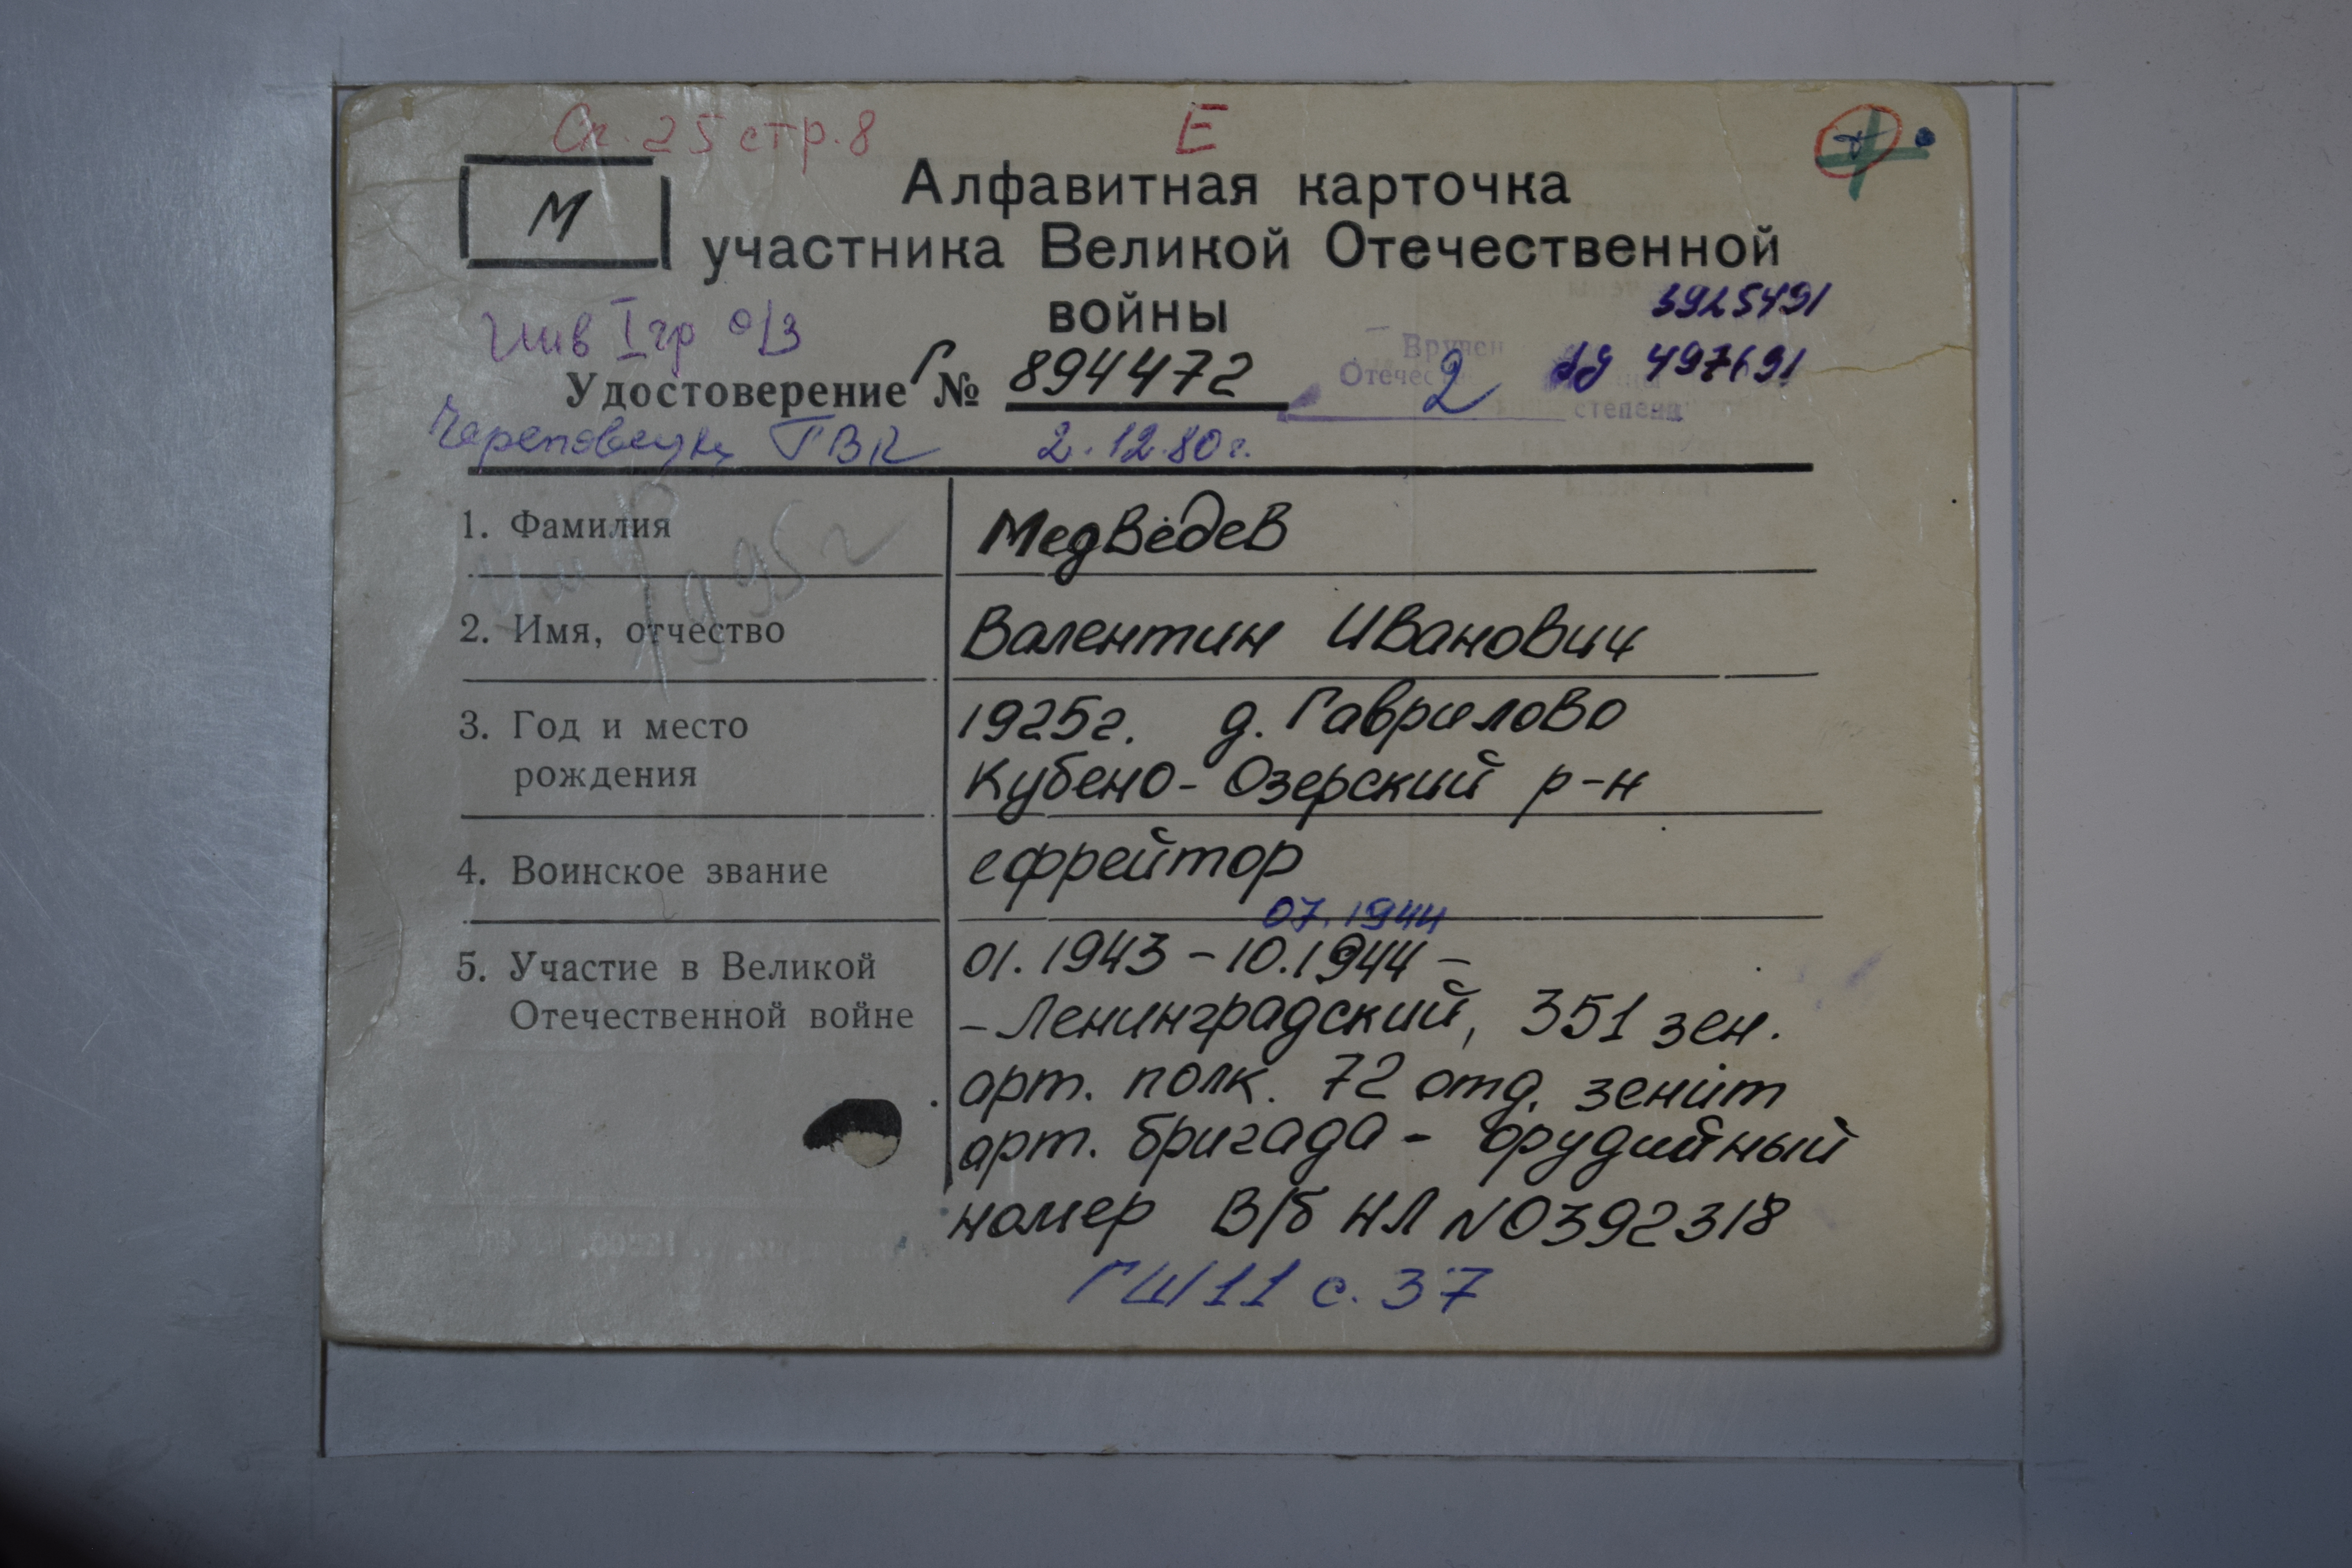 Сп. 25 стр. 8 Е
М
Алфавитная карточка
участника Великой Отечественной
войны
3925491
Инв I гр о/з
Удостоверение Г № 894472
Вручен
Отечес 2 степени
Череповецкий ГВК 2.12.80г.
умер 1995г
1. Фамилия Медведев
2. Имя, отчество Валентин Иванович
3. Год и место 1925г. д. Гаврилово
рождения Кубено-Озерский р-н
4. Воинское звание ефрейтор
07.1944
5. Участие в Великой 01.1943 - 10.1944 -
Отечественной войне - Ленинградский, 351 зен.
арт. полк. 72 отд. зенит
арт. бригада - орудийный
номер В/б НЛ №0392318
ГШ/11 с. 37